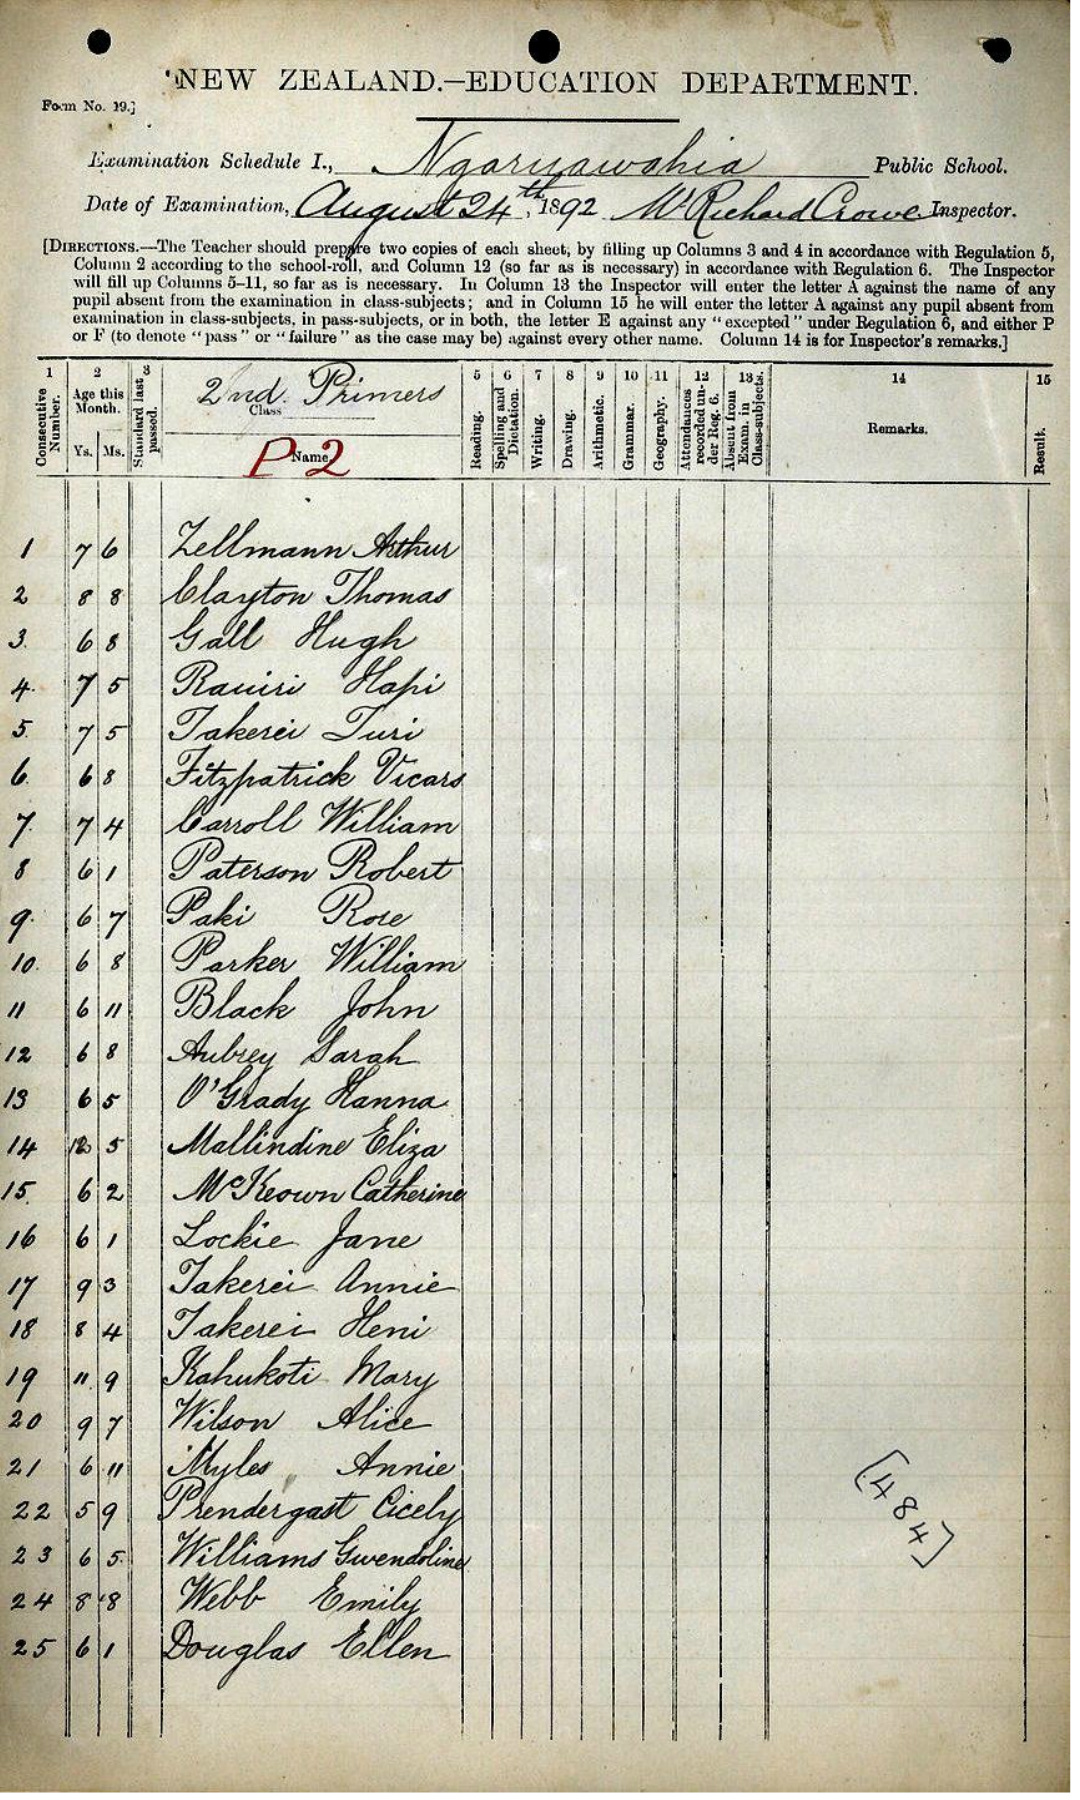 NEW ZEALAND.—EDUCATION DEPARTMENT.
Form No. 19.]
Examination Schedule I., Ngaruawahia Public School.
Date of Examination, August 24th, 1892. Mr Richard Crowe Inspector.
[DIRECTIONS.—The Teacher should prepare two copies of each sheet, by filling up Columns 3 and 4 in accordance with Regulation 5,
Column 2 according to the school-roll, and Column 12 (so far as is necessary) in accordance with Regulation 6. The Inspector
will fill up Columns 5–11, so far as is necessary. In Column 13 the Inspector will enter the letter A against the name of any
pupil absent from the examination in class-subjects; and in Column 15 he will enter the letter A against any pupil absent from
examination in class-subjects, in pass-subjects, or in both, the letter E against any "excepted" under Regulation 6, and either P
or F (to denote "pass" or "failure" as the case may be) against every other name. Column 14 is for Inspector's remarks.]
1 2 3 5 6 7 8 9 10 11 12 13 14 15
Consecutive Number. Age this Month. Ys. Ms. Standard last passed. 2nd. Primers Class P2 Name Reading. Spelling and Dictation. Writing. Drawing. Arithmetic. Grammar. Geography. Attendances recorded under Reg. 6. Absent from Exam. in Class-subjects. Remarks. Result.
1 7 6 Zellmann Arthur
2 8 8 Clayton Thomas
3. 6 8 Gall Hugh
4. 7 5 Rauiri Hapi
5. 7 5 Takerei Turi
6. 6 8 Fitzpatrick Vicars
7. 7 4 Carroll William
8 6 1 Paterson Robert
9. 6 7 Paki Rose
10. 6 8 Parker William
11 6 11 Black John
12 6 8 Aubrey Sarah
13 6 5 O'Grady Hanna
14 12 5 Mallindine Eliza
15. 6 2 McKeown Catherine
16 6 1 Lockie Jane
17 9 3 Takerei Annie
18 8 4 Takerei Heni
19 11. 9 Kahukoti Mary
20 9 7 Wilson Alice
21 6 11 Myles Annie
22 5 9 Prendergast Cicely
23 6 5. Williams Gwendoline
24 8 8 Webb Emily
25 6 1 Douglas Ellen
[484]